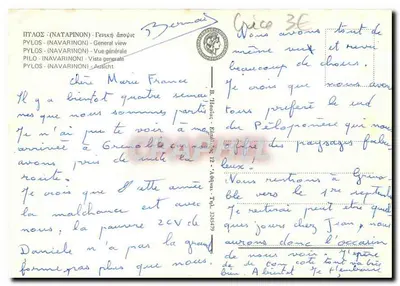 ΠΥΛΟΣ - (ΝΑΥΑΡΙΝΟΝ) - Γενική ἄποψις
PYLOS - (NAVARINON) - General view
PYLOS - (NAVARINON) - Vue générale
PILO - (NAVARINON) - Vista generale
PYLOS - (NAVARINON) - Ansicht
Grèce 3E
Chère Marie France
Il y a bientôt quatre semai
nes que nous sommes partis.
Je n'ai pu te voir à mon
arrivée à Grenoble
avons pris de suite la
route.
Je crois que cette année
la malchance est avec
nous, la pauvre 2CV de
Daniele n'a pas la grande
forme pas plus que nous.
Nous avons tout de
même vu et revu
beaucoup de choses.
Je crois que nous avons
tous préféré le sud
du Péloponèse qui nous
des paysages fabu
leux.
Nous rentrons à Grenoble
ble vers le 1er septembre
Je resterai peut être quel
ques jours chez Jean, nous
aurons donc l'occasion
de nous voir. J'espère
que de ton côté tout va très
bien. A bientôt. Je t'embrasse
Bernard